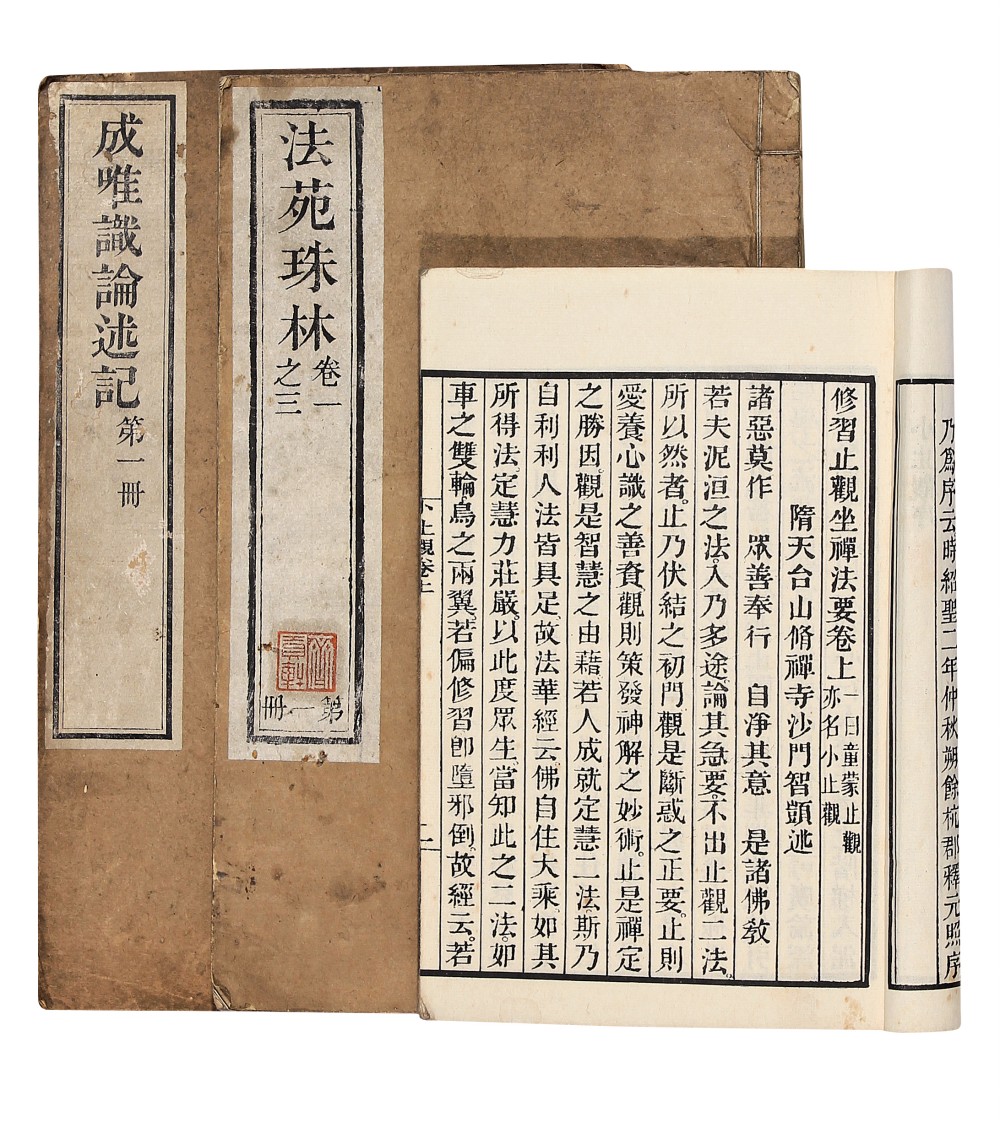 成唯識論述記第一冊
法苑珠林卷一之三
第一冊
乃爲序云時紹聖二年仲秋朔餘杭郡釋元照序
修習止觀坐禪法要卷上一曰童蒙止觀亦名小止觀
隋天台山脩禪寺沙門智顗述
諸惡莫作　眾善奉行　自淨其意　是諸佛教
若夫泥洹之法。入乃多途。論其急要。不出止觀二法。
所以然者。止乃伏結之初門。觀是斷惑之正要。止則
愛養心識之善資。觀則策發神解之妙術。止是禪定
之勝因。觀是智慧之由藉。若人成就定慧二法。斯乃
自利利人法皆具足。故法華經云。佛自住大乘如其
所得法。定慧力莊嚴。以此度眾生。當知此之二法。如
車之雙輪。鳥之兩翼。若偏修習。卽墮邪倒。故經云。若
止觀卷上